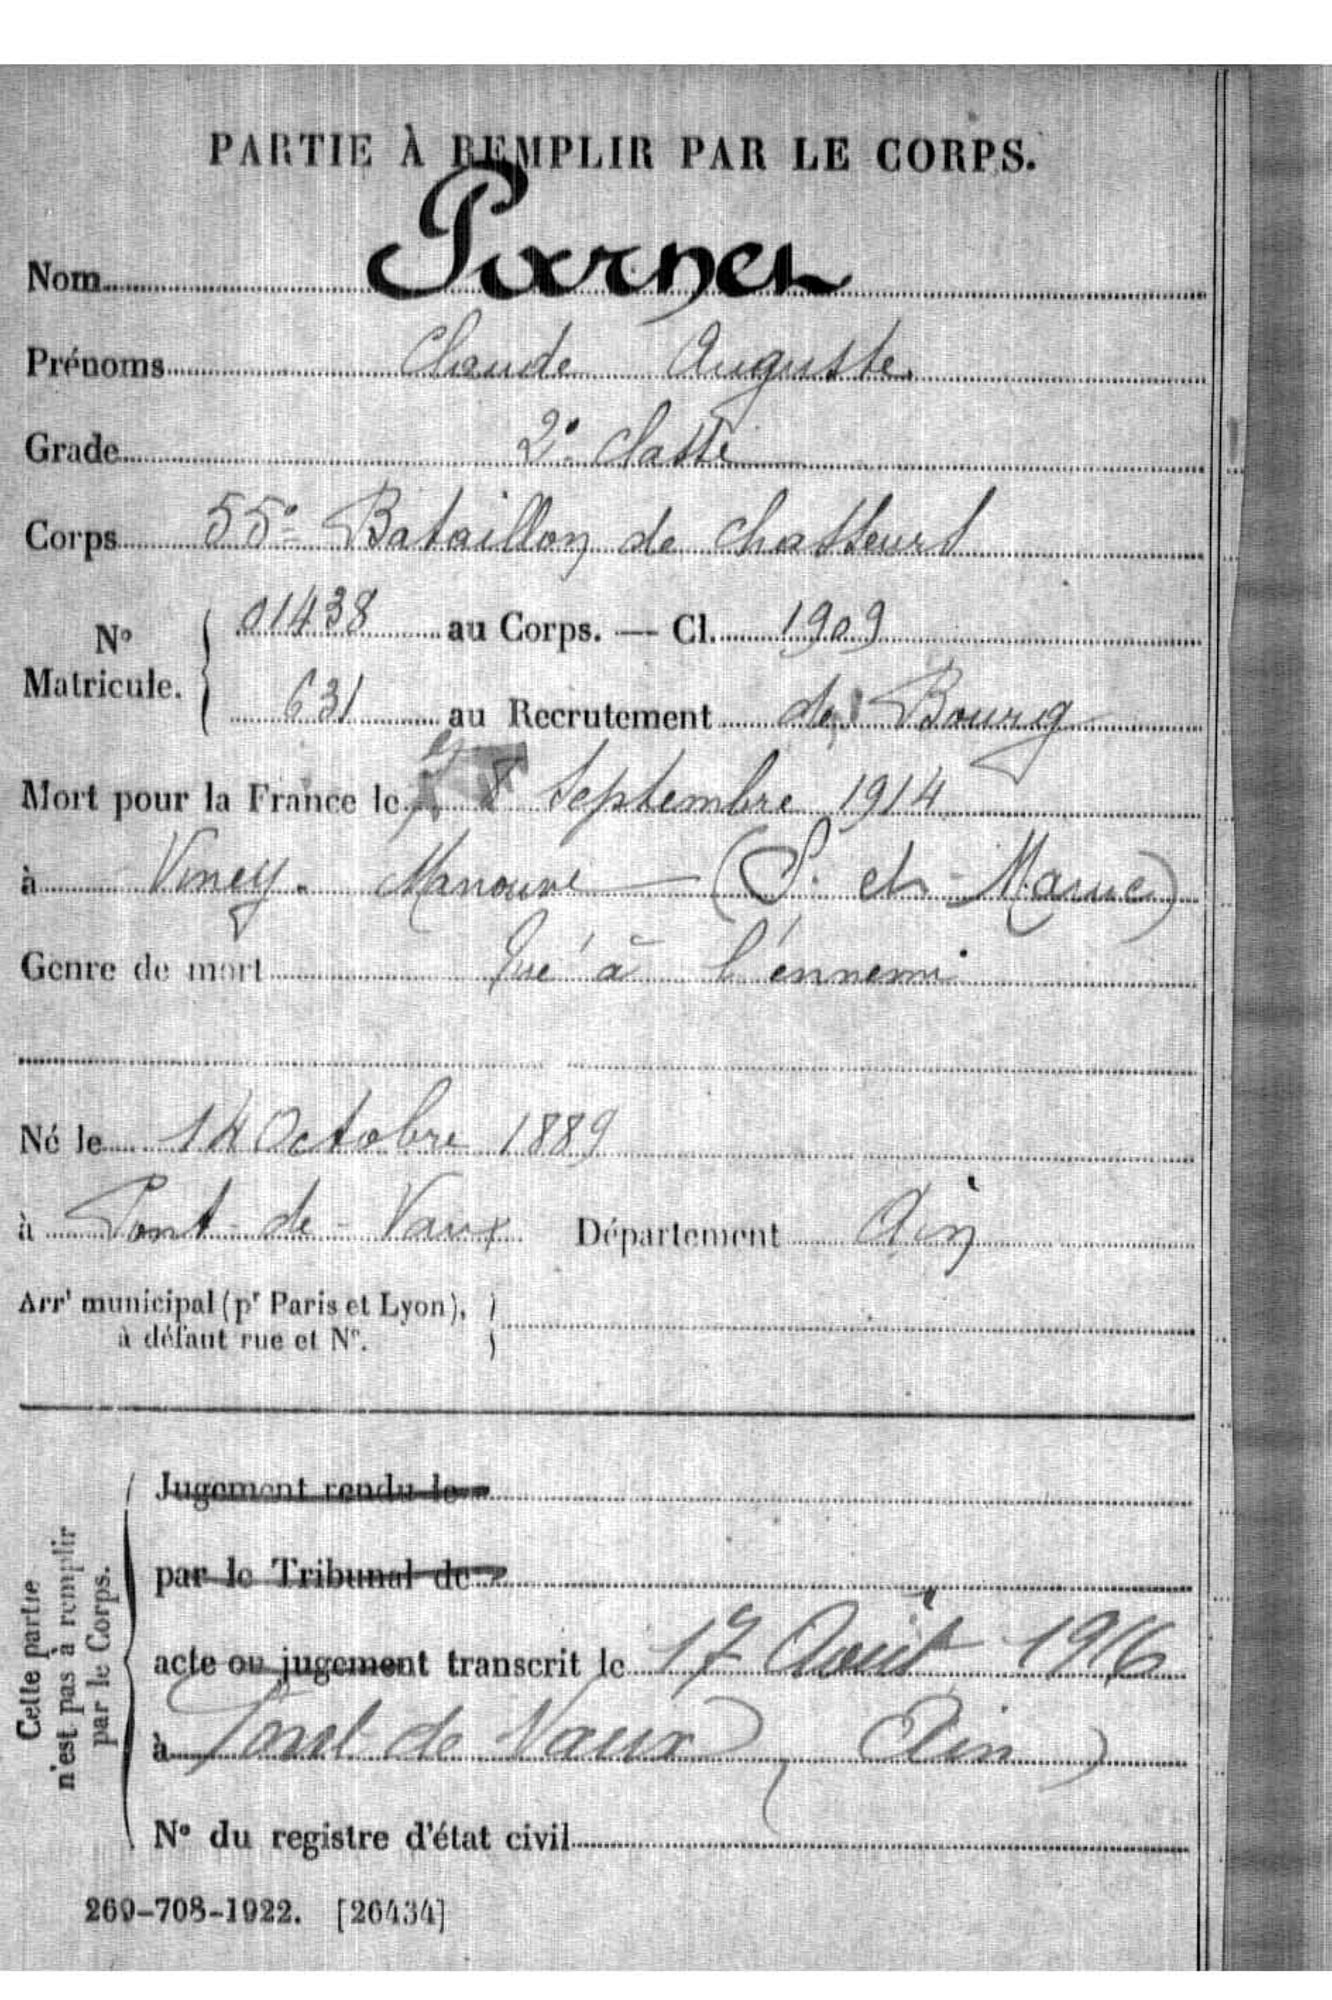 PARTIE À REMPLIR PAR LE CORPS.
Nom
Prénoms Claude Auguste.
Grade 2e classe
Corps 55e Bataillon de chasseurs
N° Matricule. { 01438 au Corps. — Cl. 1909
631 au Recrutement de Bourg
Mort pour la France le 8 Septembre 1914
à Viney. Manoeuvre (S. et Marne)
Genre de mort Tué à l'énnemi
Né le 14 Octobre 1889
à Pont-de-Vaux Département Ain
Arrt municipal (pr Paris et Lyon), }
à défaut rue et N°.
Cette partie
n'est pas à remplir
par le Corps.
Jugement rendu le
par le Tribunal de
acte ou jugement transcrit le 17 Août 1916
à Pont de Vaux (Ain)
N° du registre d'état civil
269-708-1922. [26434]